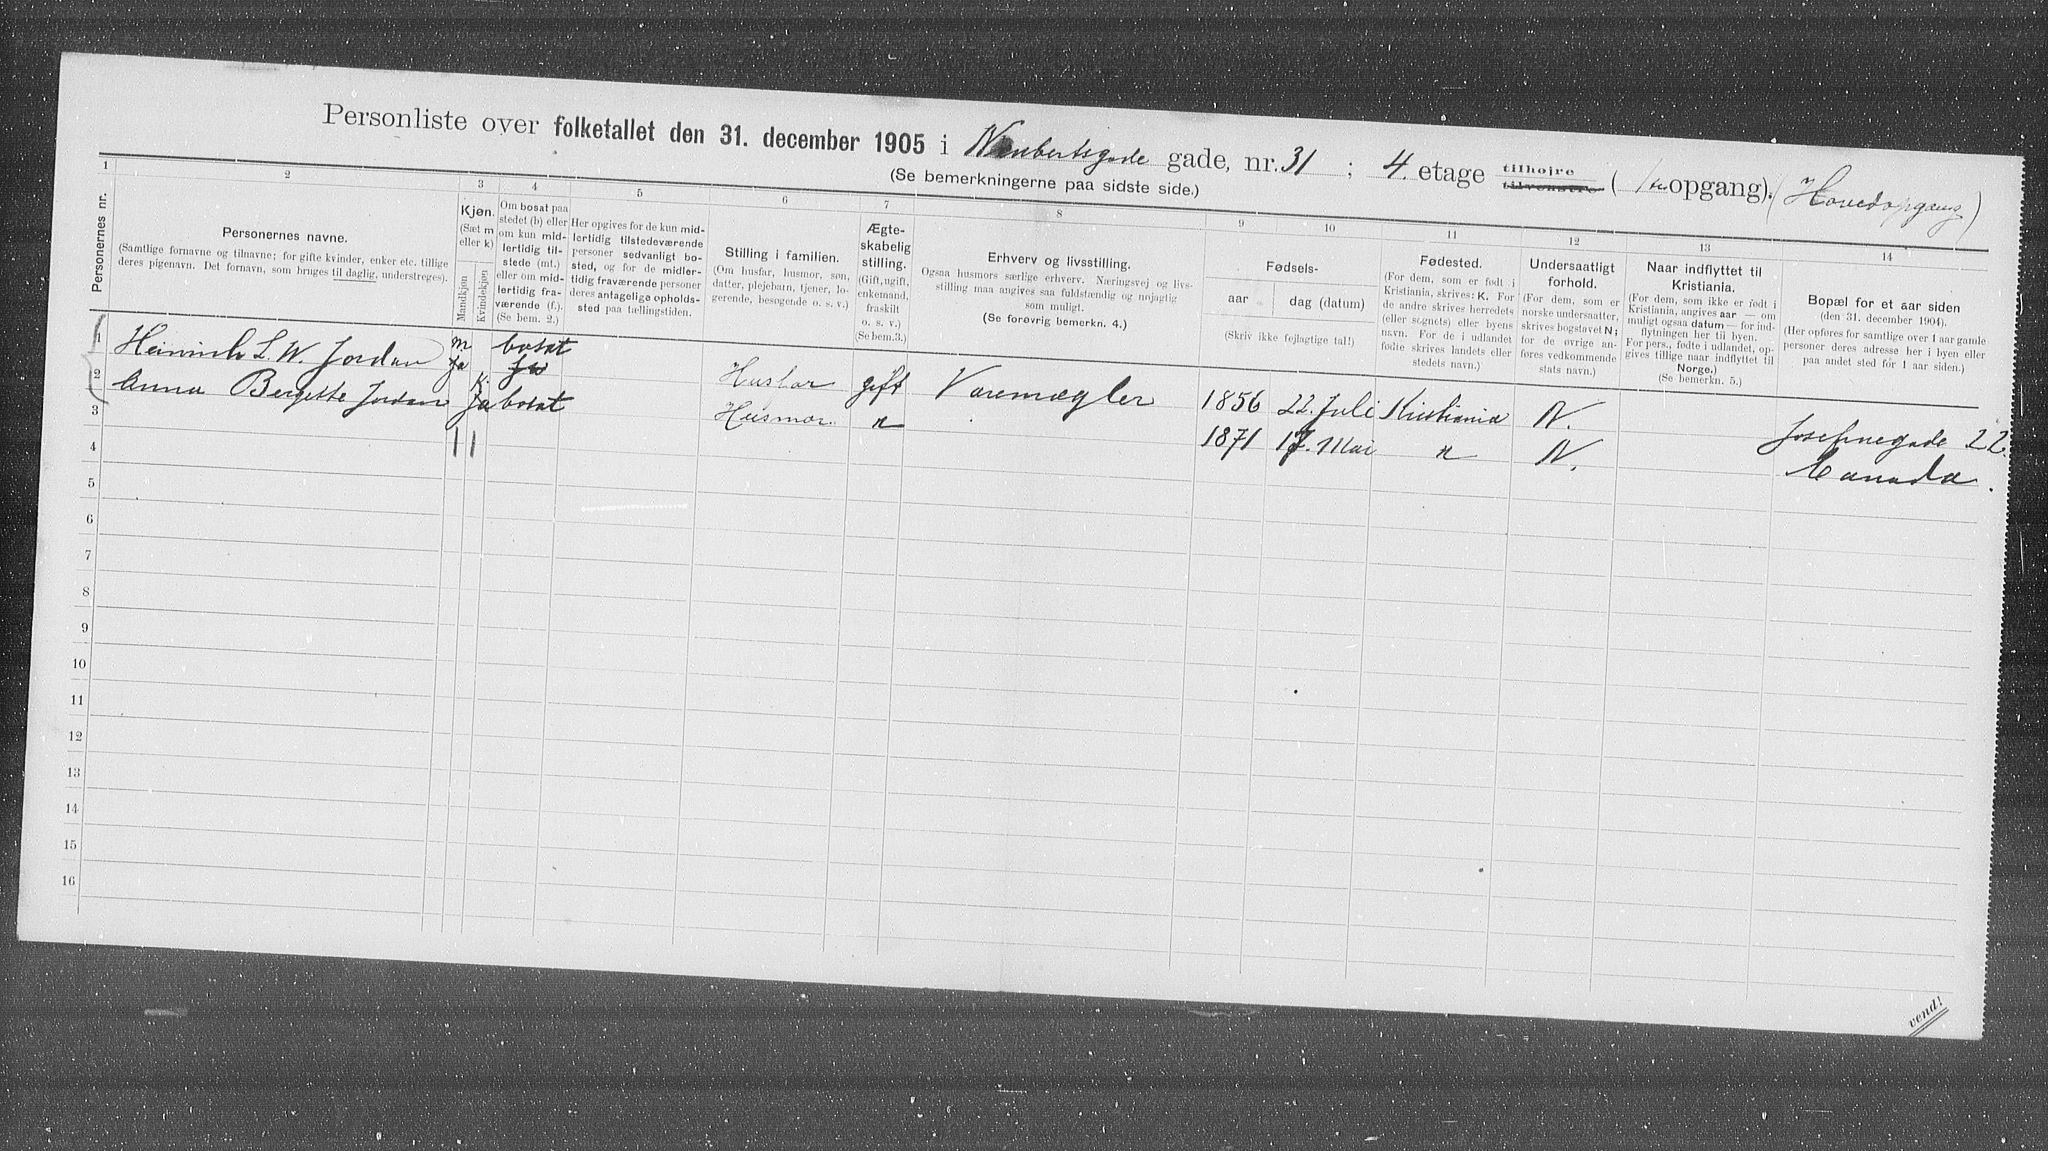 Personliste over folketallet den 31. december 1905 i Neubertsgade gade, nr. 31 ; 4. etage tilhøjre tilvenstre ( 1ste opgang). (Hovedopgang)
(Se bemerkningerne paa sidste side.)
1 2 3 4 5 6 7 8 9 10 11 12 13 14
Personernes nr.
Personernes navne.
(Samtlige fornavne og tilnavne; for gifte kvinder, enker etc. tillige
deres pigenavn. Det fornavn, som bruges til daglig, understreges).
Kjøn.
(Sæt m
eller k)
Mandkjøn
Kvindekjøn
Om bosat paa
stedet (b) eller
om kun mid-
lertidig til-
stede (mt.)
eller om mid-
lertidig fra-
værende (f.).
(Se bem. 2.)
Her opgives for de kun mid-
lertidig tilstedeværende
personer sedvanligt bo-
sted, og for de midler-
tidig fraværende personer
deres antagelige opholds-
sted paa tællingstiden.
Stilling i familien.
(Om husfar, husmor, søn,
datter, plejebarn, tjener, lo-
gerende, besøgende o. s. v.)
Ægte-
skabelig
stilling.
(Gift, ugift,
enkemand,
fraskilt
o. s. v.)
(Se bem. 3.)
Erhverv og livsstilling.
Ogsaa husmors særlige erhverv. Næringsvej og livs-
stilling maa angives saa fuldstændig og nøjagtig
som muligt.
(Se forøvrig bemerkn. 4.)
Fødsels-
aar
dag (datum)
(Skriv ikke fejlagtige tal!)
Fødested.
(For dem, som er født i
Kristiania, skrives: K. For
de andre skrives herredets
(eller sognets) eller byens
navn. For de i udlandet
fødte skrives landets eller
stedets navn.)
Undersaatligt
forhold.
(For dem, som er
norske undersaatter,
skrives bogstavet N;
for de øvrige an-
føres vedkommende
stats navn.)
Naar indflyttet til
Kristiania.
(For dem, som ikke er født i
Kristiania, angives aar — om
muligt ogsaa datum — for ind-
flytningen her til byen.
For pers., fødte i udlandet, op-
gives tillige naar indflyttet til
Norge.)
(Se bemerkn. 5.)
Bopæl for et aar siden
(den 31. december 1904).
(Her opføres for samtlige over 1 aar gamle
personer deres adresse her i byen eller
paa andet sted for 1 aar siden.)
1 Heinrich L. W. Jordan m Ja bosat Husfar gift Varemægler 1856 22. Juli Kristiania N. Josefinegade 22.
2 Anna Bergitte Jordan k. Ja bosat Husmor " 1871 17. Mai " N. Canada.
3
4
5
6
7
8
9
10
11
12
13
14
15
16
vend!